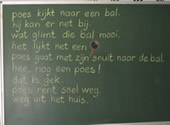 poes kijkt naar een bal.
hij kan er net bij.
wat glimt die bal mooi.
het lijkt net een
poes gaat met zijn snuit naar de bal.
hee, nog een poes!
dat is gek.
poes rent snel weg.
weg uit het huis.